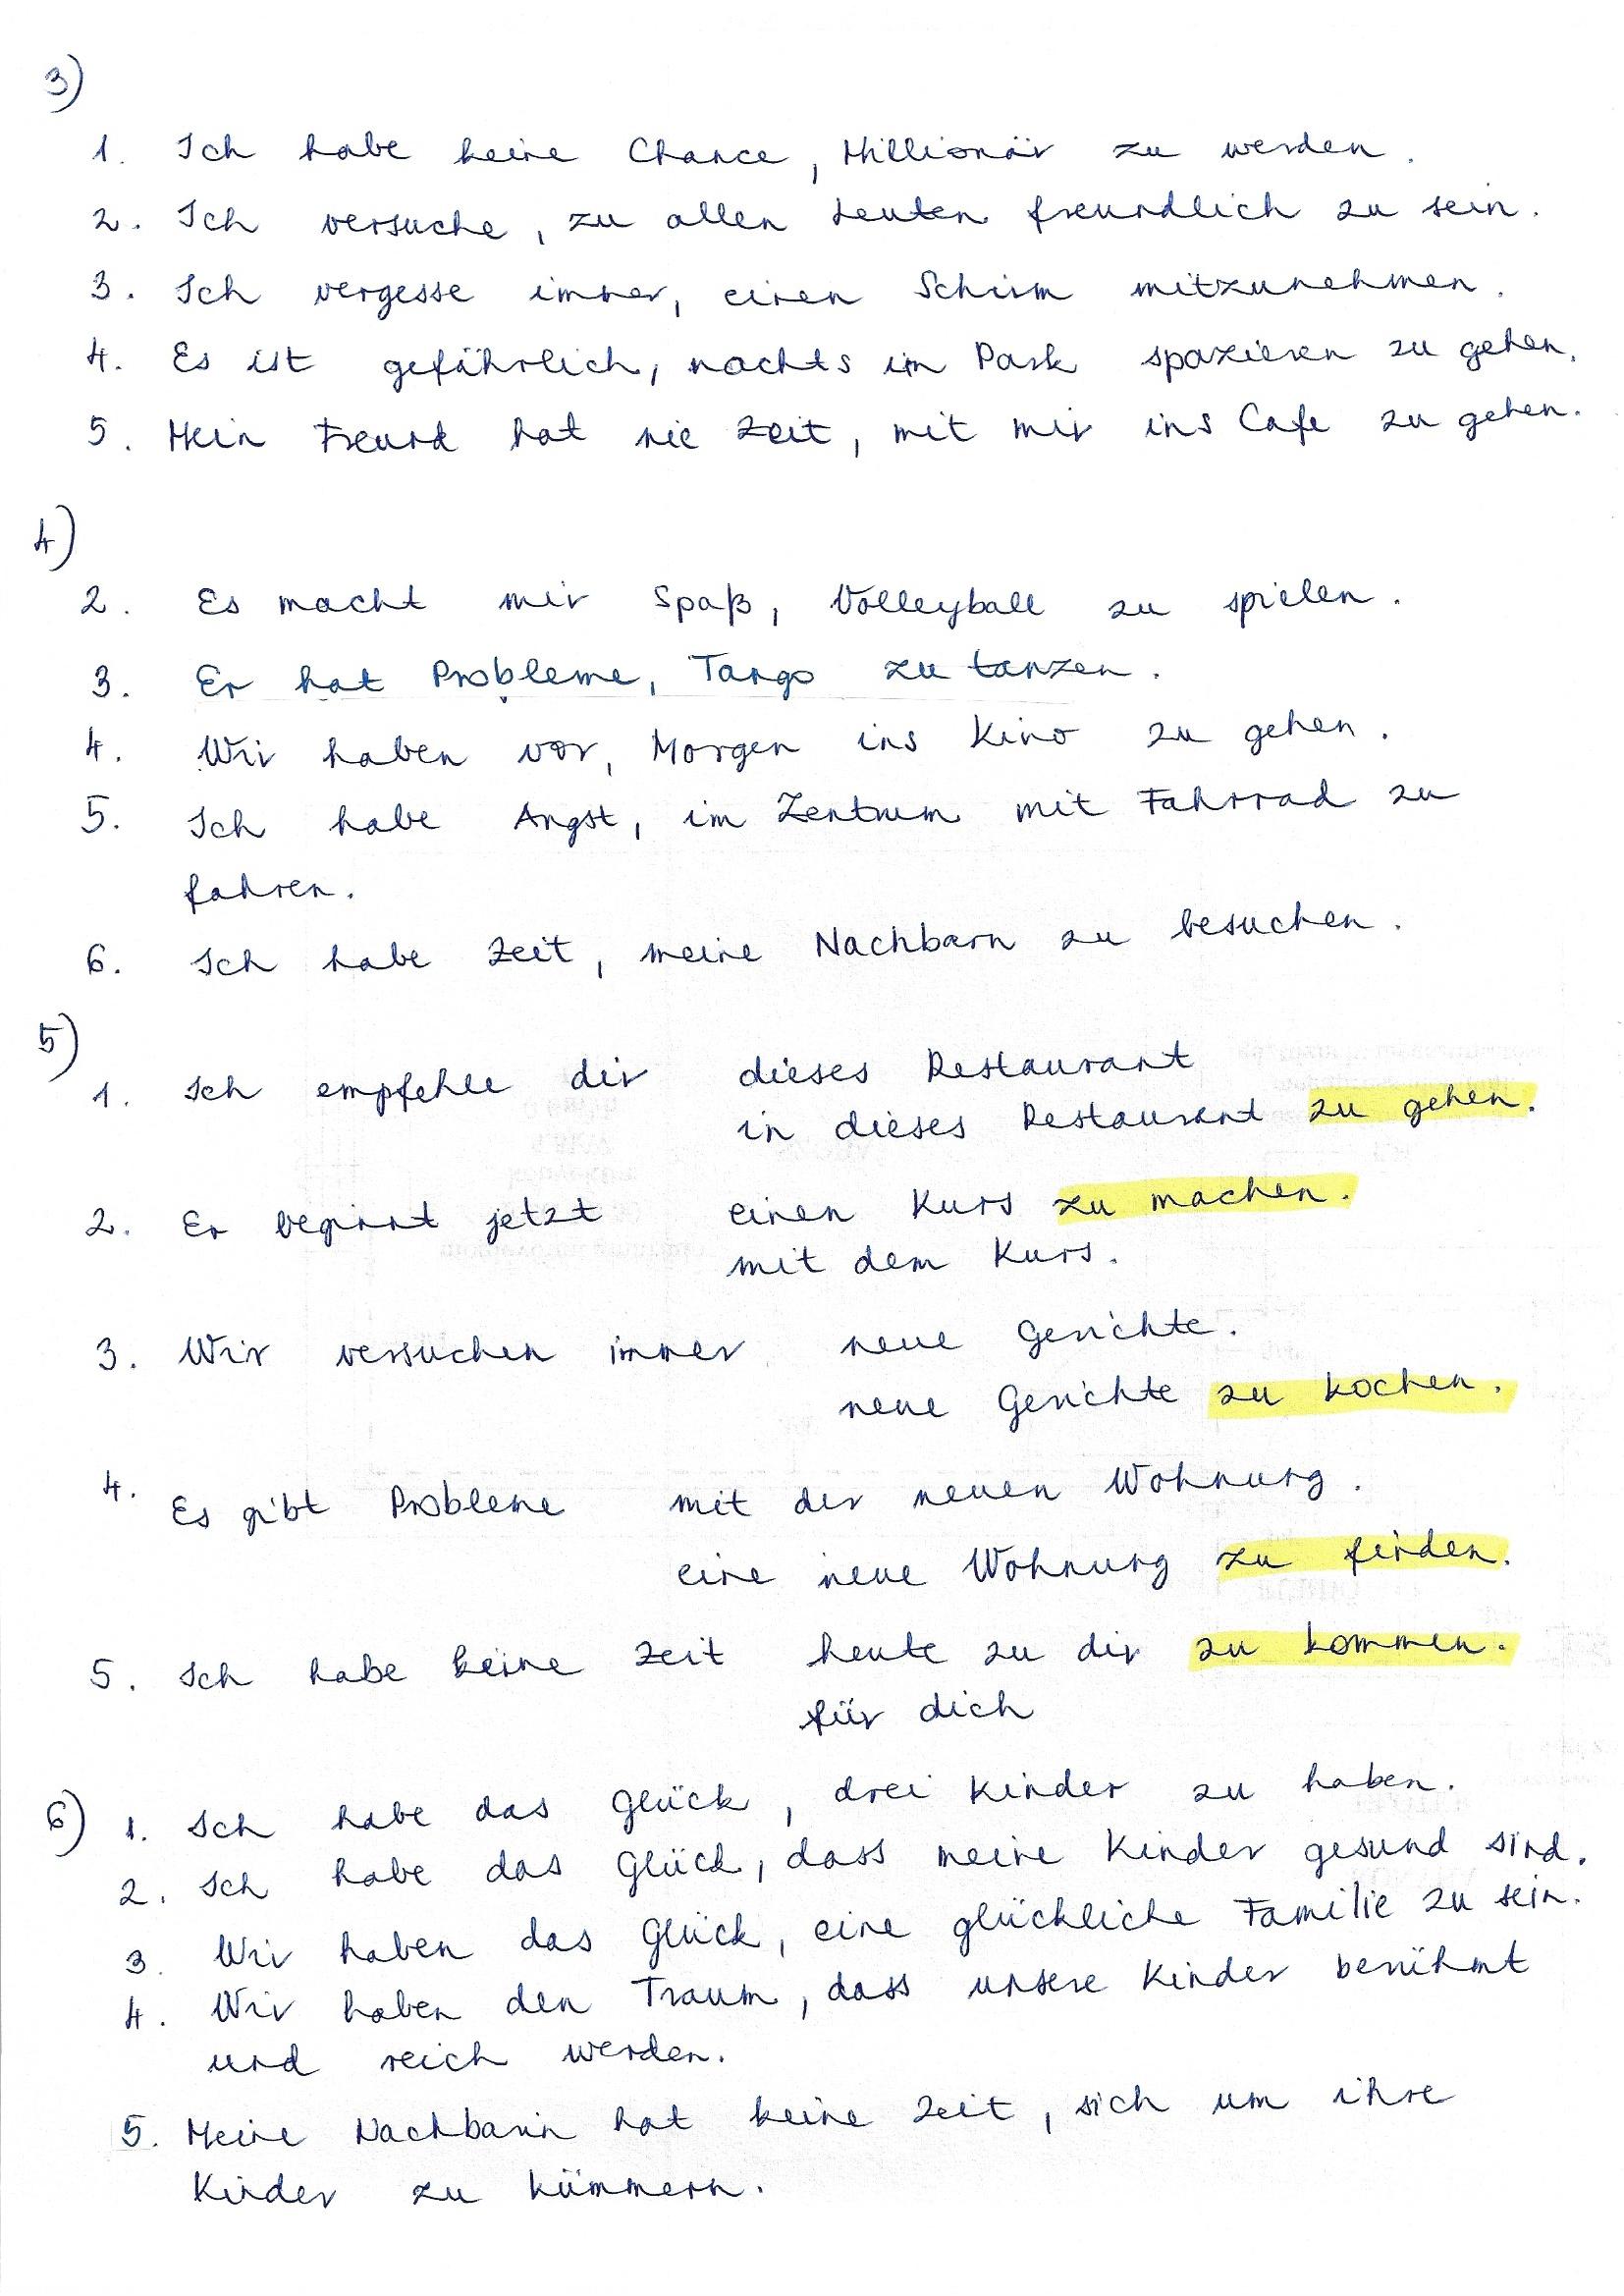 3)
1. Ich habe keine Chance, Millionär zu werden.
2. Ich versuche, zu allen Leuten freundlich zu sein.
3. Ich vergesse immer, einen Schirm mitzunehmen.
4. Es ist gefährlich, nachts im Park spazieren zu gehen.
5. Mein Freund hat nie Zeit, mit mir ins Cafe zu gehen.
4)
2. Es macht mir Spaß, Volleyball zu spielen.
3. Er hat Probleme, Tango zu tanzen.
4. Wir haben vor, Morgen ins Kino zu gehen.
5. Ich habe Angst, im Zentrum mit Fahrrad zu
fahren.
6. Ich habe Zeit, meine Nachbarn zu besuchen.
5)
1. Ich empfehle dir dieses Restaurant
in dieses Restaurant zu gehen.
2. Er beginnt jetzt einen Kurs zu machen.
mit dem Kurs.
3. Wir versuchen immer neue Gerichte.
neue Gerichte zu kochen.
4. Es gibt Probleme mit der neuen Wohnung.
eine neue Wohnung zu finden.
5. Ich habe keine Zeit heute zu dir zu kommen.
für dich
6) 1. Ich habe das Glück, drei Kinder zu haben.
2. Ich habe das Glück, dass meine Kinder gesund sind.
3. Wir haben das Glück, eine glückliche Familie zu sein.
4. Wir haben den Traum, dass unsere Kinder berühmt
und reich werden.
5. Meine Nachbarin hat keine Zeit, sich um ihre
Kinder zu kümmern.